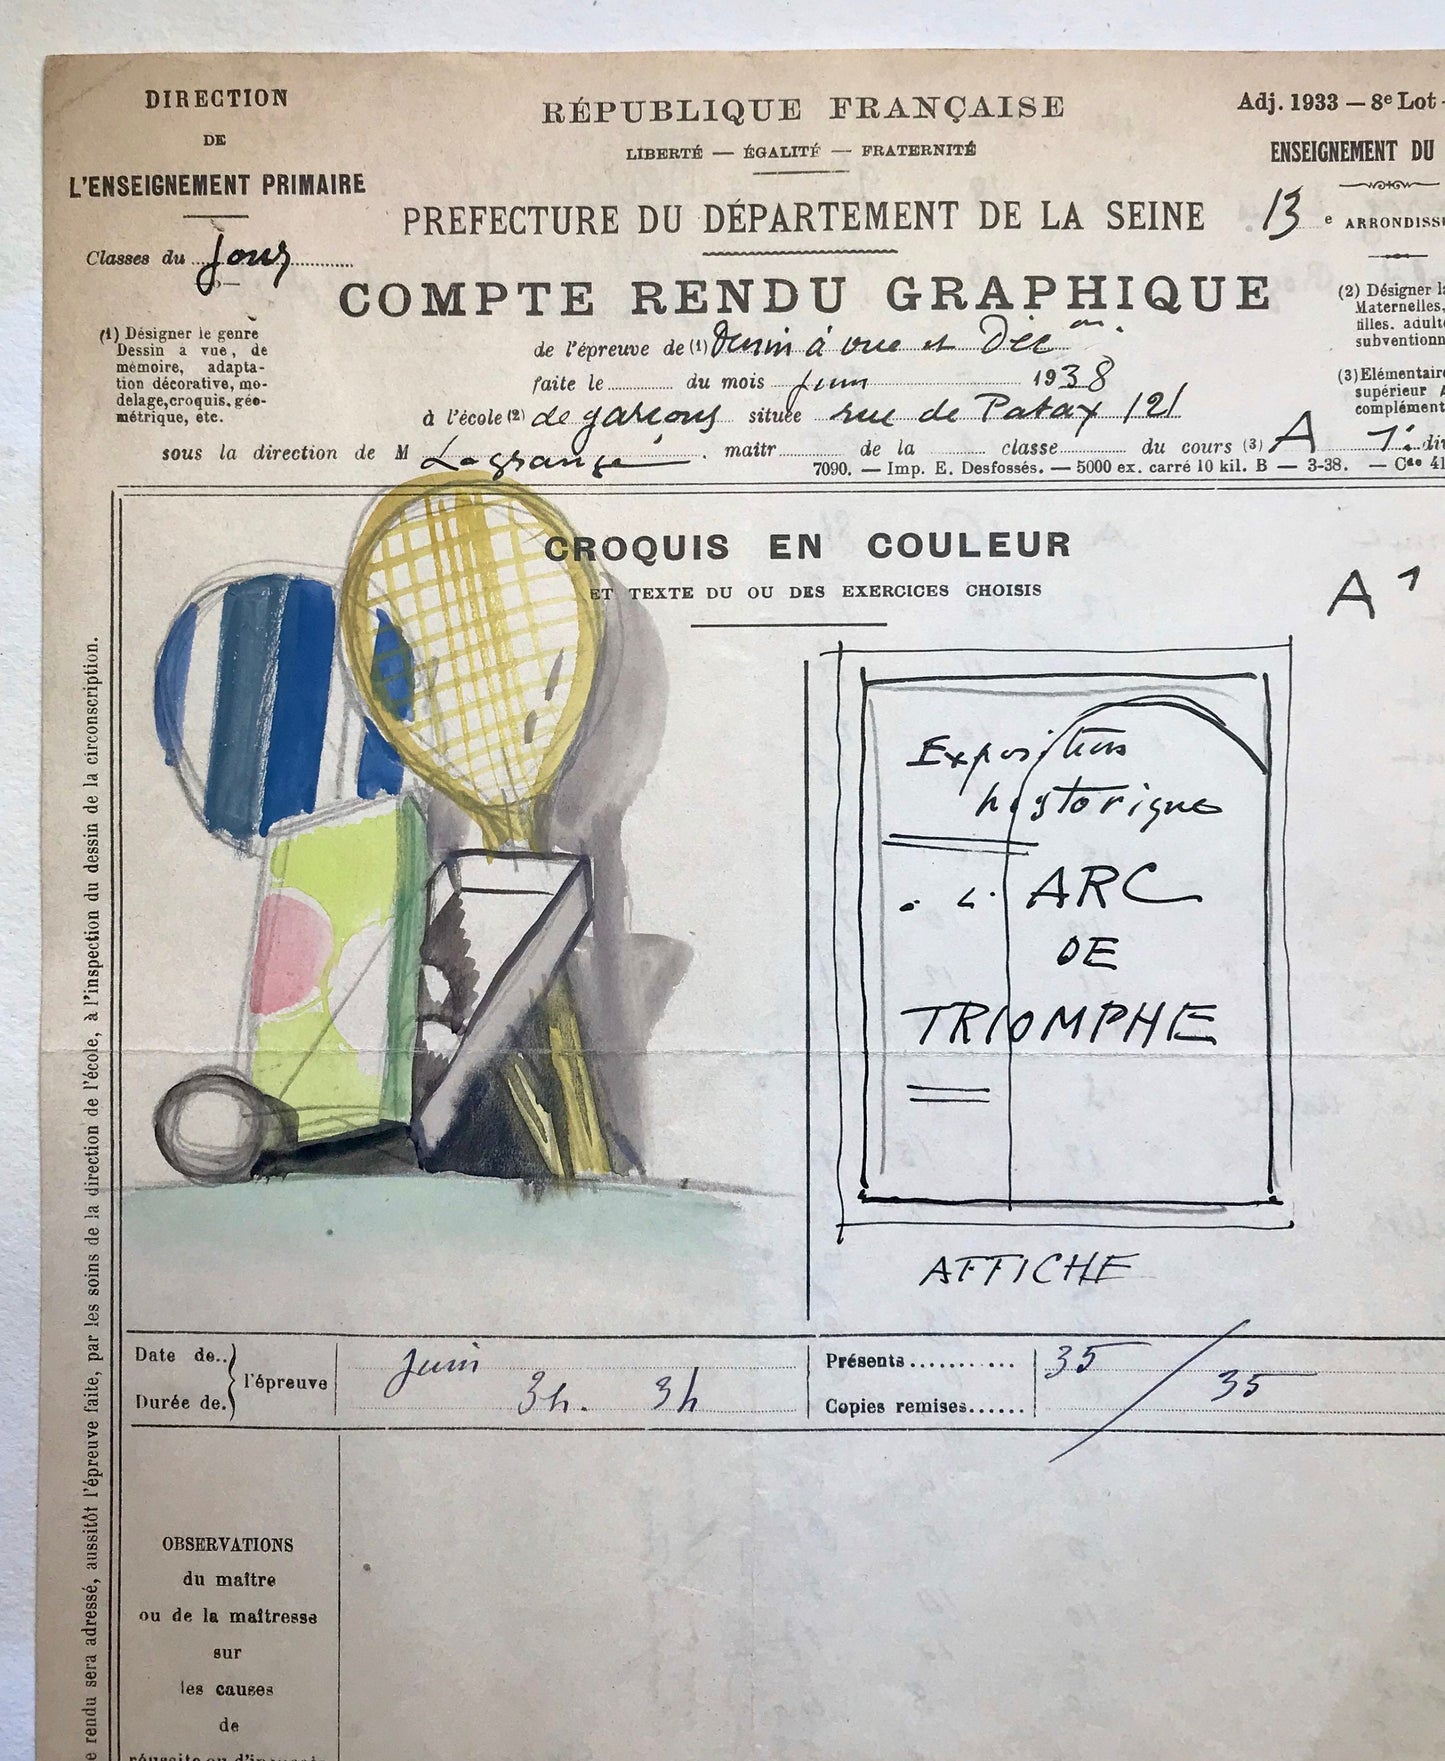 DIRECTION
DE
L'ENSEIGNEMENT PRIMAIRE
Classes du Jour
RÉPUBLIQUE FRANÇAISE
LIBERTÉ — ÉGALITÉ — FRATERNITÉ
PREFECTURE DU DÉPARTEMENT DE LA SEINE
Adj. 1933 — 8e Lot -
ENSEIGNEMENT DU
13 e ARRONDISS
COMPTE RENDU GRAPHIQUE
(1) Désigner le genre
Dessin a vue, de
mémoire, adapta-
tion décorative, mo-
delage, croquis, géo-
métrique, etc.
de l'épreuve de (1) Dessin à vue et Déc on.
faite le du mois Juin 1938
à l'école (2) de garçons située rue de Patay 121
sous la direction de M Lagrange. maîtr de la classe du cours (3) A 1e div
7090. — Imp. E. Desfossés. — 5000 ex. carré 10 kil. B — 3-38. — Cde 41
(2) Désigner la
Maternelles,
filles. adult
subventionn
(3) Elémentaire
supérieur
complément
CROQUIS EN COULEUR
ET TEXTE DU OU DES EXERCICES CHOISIS
A 1
Exposition
historique
L' ARC
DE
TRIOMPHE
AFFICHE
Date de..
Durée de.
l'épreuve
Juin
3h. 3h
Présents........... 35
Copies remises...... 35
OBSERVATIONS
du maître
ou de la maîtresse
sur
les causes
de
réussite ou d'insuccès
e rendu sera adressé, aussitôt l'épreuve faite, par les soins de la direction de l'école, à l'inspection du dessin de la circonscription.